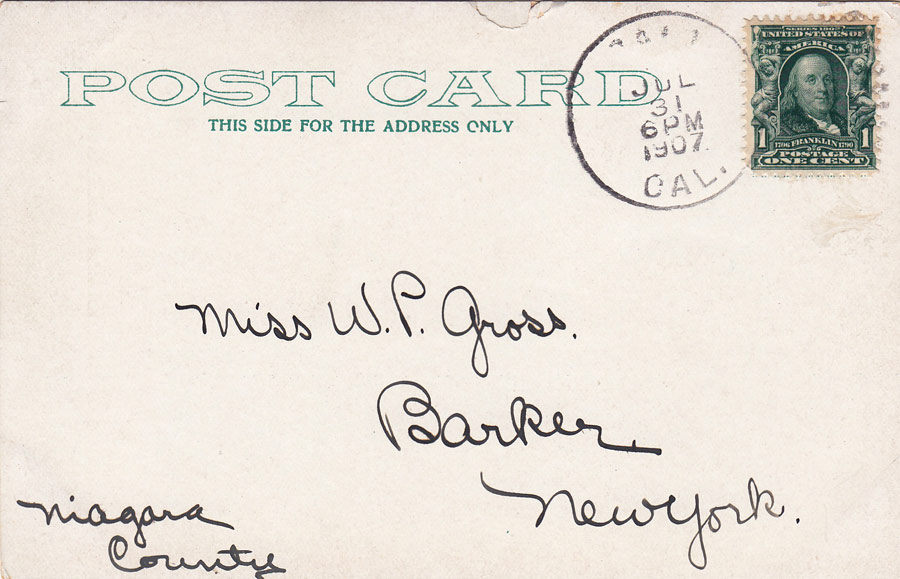 POST CARD
THIS SIDE FOR THE ADDRESS ONLY
JUL
31
6 PM
1907
CAL.
SERIES 1902
UNITED STATES OF
AMERICA
1 1
1706 FRANKLIN 1790
POSTAGE
ONE CENT
Miss W. P. Gross.
Barker
New York.
Niagara
County